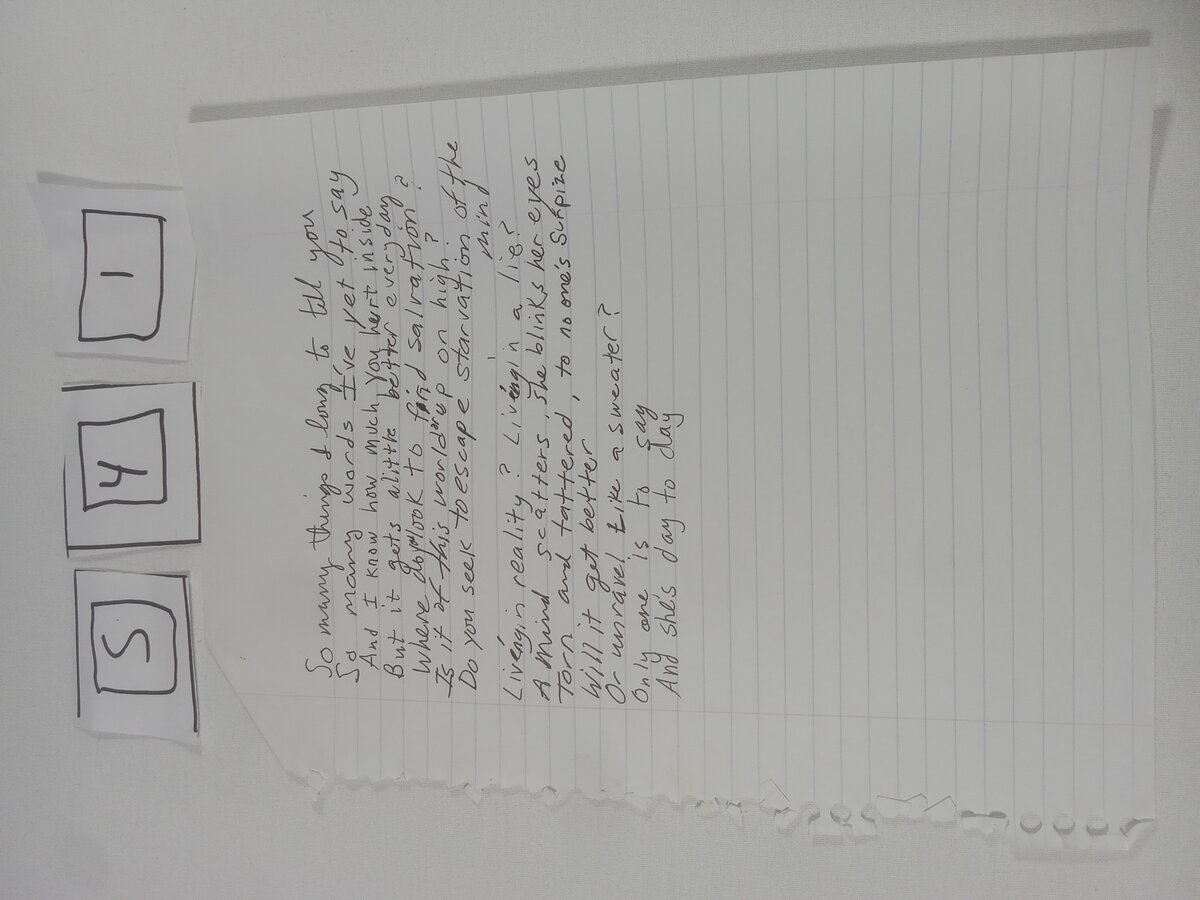 5 4 1
So many things I long to tell you
So many words I've yet to say
And I know how much you hurt inside
But it gets a little better everyday
Where do you look to find salvation?
Is it of this world or up on high?
Do you seek to escape starvation of the
mind
Living in reality? Living in a lie?
A mind scatters, she blinks her eyes
Torn and tattered, to no one's Surpize
Will it get better
Or unravel Like a sweater?
Only one is to say
And she's day to day